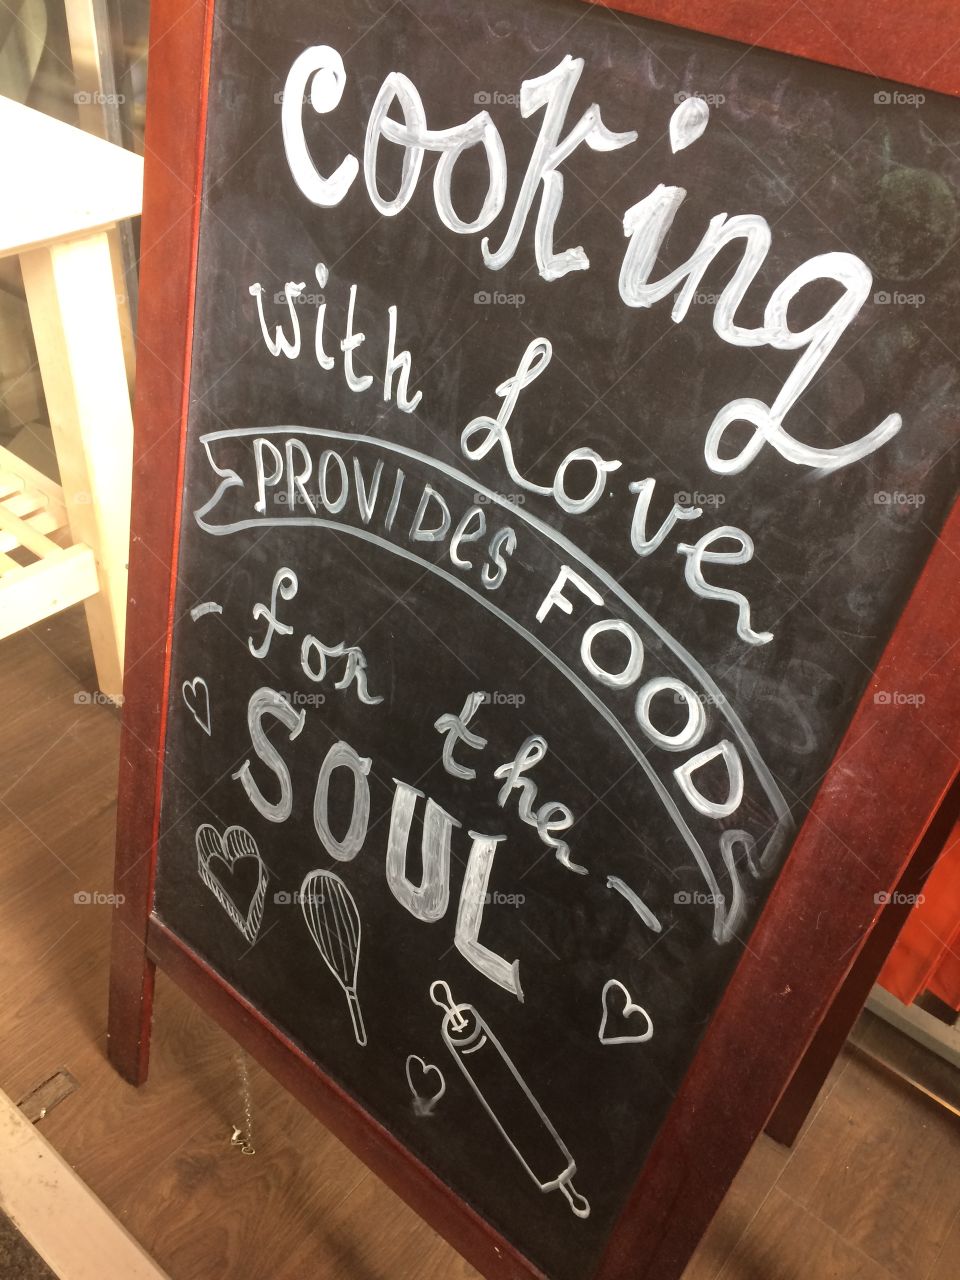 cooking
with Love
PROVIDes FOOD
- for the -
SOUL